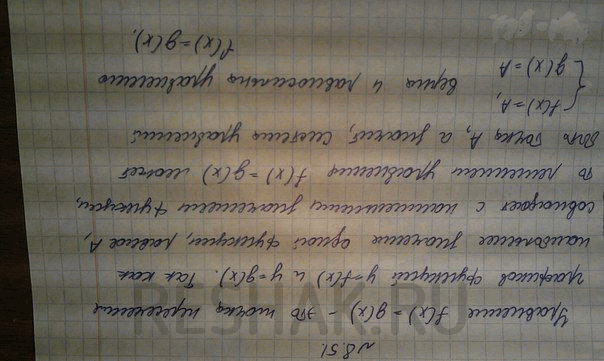 №8.51
Уравнение f(x)=g(x) – это точка пересечения
графиков функций y=f(x) и y=g(x). Так как
наибольшее значение одной функции, равное A,
совпадает с наименьшим значением функции,
то решением уравнения f(x)=g(x) может
быть точка A, а значит, система уравнений
{ f(x)=A,
g(x)=A верна и равносильна уравнению
f(x)=g(x).
RESHAK.RU